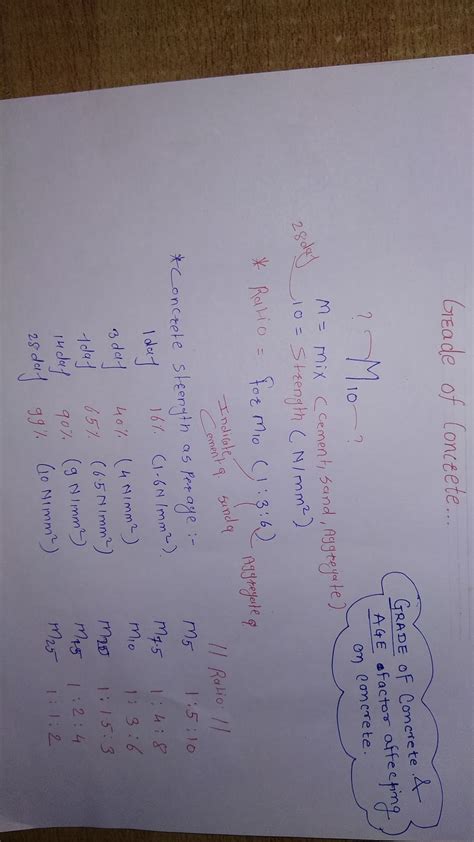 Grade of Concrete...
GRADE of Concrete &
AGE factor affecting
on concrete.
? M10 ?
M = Mix (Cement, Sand, Aggregate)
28day 10 = Strength (N/mm²)
* Ratio = for M10 (1:3:6)
Indicate
Cement q
Sand q
Aggregate q
* Concrete Strength as per age :-
1 day 16% (1.6 N/mm²)
3 day 40% (4 N/mm²)
7 day 65% (6.5 N/mm²)
14 day 90% (9 N/mm²)
28 day 99% (10 N/mm²)
// Ratio //
M5 1:5:10
M7.5 1:4:8
M10 1:3:6
1:1.5:3
1:2:4
M25 1:1:2